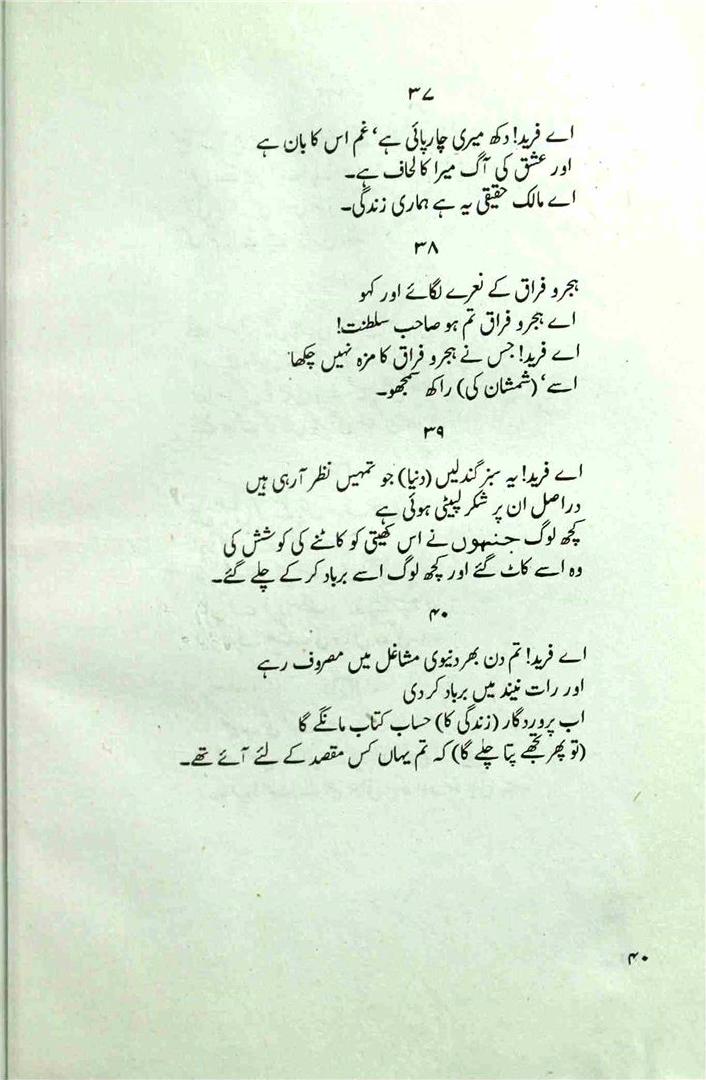 ۳۷
اے فرید! دکھ میری چارپائی ہے، غم اس کا بان ہے
اور عشق کی آگ میرا کا لحاف ہے۔
اے مالک حقیقی یہ ہے ہماری زندگی۔
۳۸
ہجر و فراق کے نعرے لگائے اور کہو
اے ہجر و فراق تم ہو صاحب سلطنت!
اے فرید! جس نے ہجر و فراق کا مزہ نہیں چکھا
اسے، (شمشان کی) راکھ سمجھو۔
۳۹
اے فرید! یہ سبز گندلیں (دنیا) جو تمہیں نظر آرہی ہیں
دراصل ان پر شکر لپیٹی ہوئی ہے
کچھ لوگ جنہوں نے اس کھیتی کو کاٹنے کی کوشش کی
وہ اسے کاٹ گئے اور کچھ لوگ اسے برباد کر کے چلے گئے۔
۴۰
اے فرید! تم دن بھر دنیوی مشاغل میں مصروف رہے
اور رات نیند میں برباد کر دی
اب پروردگار (زندگی کا) حساب کتاب مانگے گا
(تو پھر تجھے پتا چلے گا) کہ تم یہاں کس مقصد کے لئے آئے تھے۔
۴۰